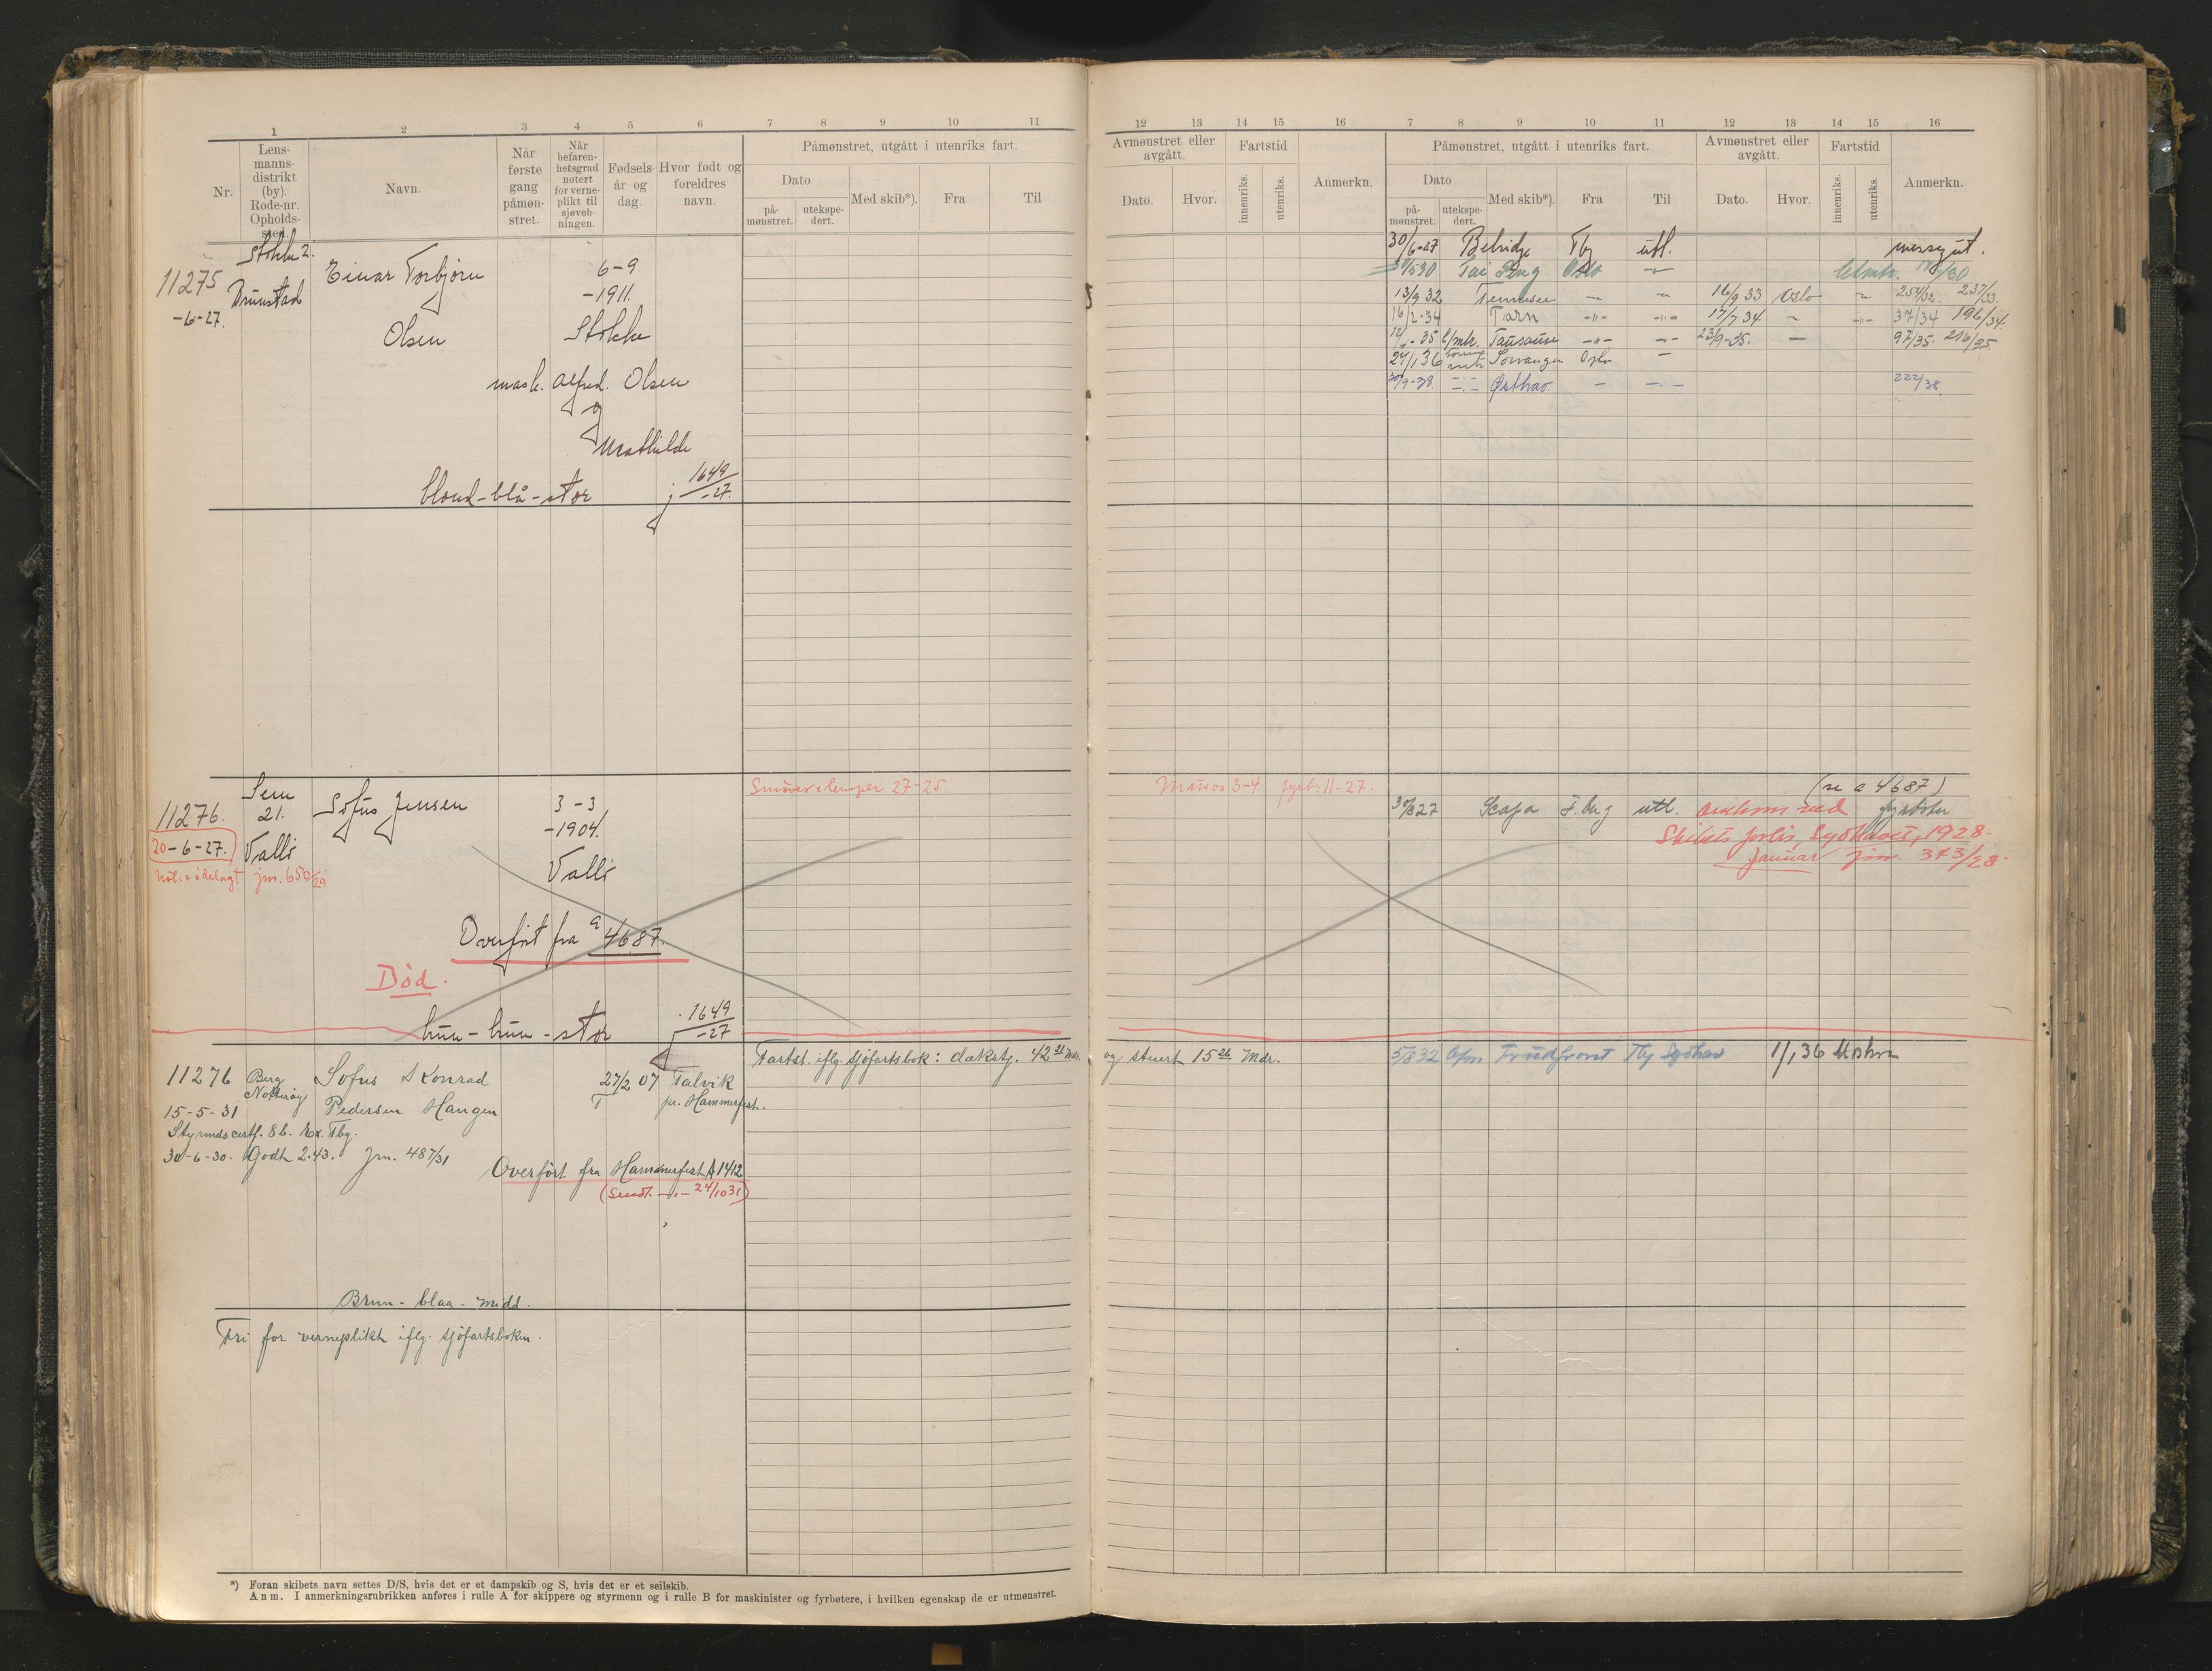 1 2 3 4 5 6 7 8 9 10 11
Nr.
Lens-
manns-
distrikt
(by).
Rode-nr.
Opholds-
sted.
Navn.
Når
første
gang
påmøn-
stret.
Når
befaren-
hetsgrad
notert
for verne-
plikt til
sjøveb-
ningen.
Fødsels-
år og
dag.
Hvor født og
foreldres
navn.
Påmønstret, utgått i utenriks fart.
Dato
på-
mønstret.
utekspe-
dert.
Med skib*).
Fra
Til
Stokke 2.
11275
Brunstad
-6-27.
Einar Torbjørn
Olsen
6-9
-1911.
Stokke
mask. Alfred Olsen
og
Mathilde
blond-blå-stor
j 1649/-27.
Sem
21.
11276.
20-6-27.
Valle
jnr. 650/29
Sofus Jensen
3-3
-1904.
Valle
Overført fra a 4687.
Død.
brun-brun-stor
1649/-27
11276
15-5-31
Berg
Nøtterøy
Sofus Konrad
Pedersen Haugen
27/2 07
Talvik
pr. Hammerfest.
Styrmdscertf. 8b. Ex. Tbg.
30-6-30. Godth 2.43. jrn. 487/31
Overført fra Hammerfest A 1412
(Sendt. -"- 24/10 31)
Fartst. iflg. sjøfartsbok: dækstj. 42 21 Mdr.
Brun - blaa - midd.
Fri for verneplikt iflg. sjøfartsboken.
*) Foran skibets navn settes D/S, hvis det er et dampskib og S, hvis det er et seilskib.
Anm. I anmerkningsrubrikken anføres i rulle A for skippere og styrmenn og i rulle B for maskinister og fyrbøtere, i hvilken egenskap de er utmønstret.
12 13 14 15 16 7 8 9 10 11 12 13 14 15 16
Avmønstret eller
avgått.
Dato.
Hvor.
Fartstid
innenriks.
utenriks.
Anmerkn.
Påmønstret, utgått i utenriks fart.
Dato
på-
mønstret.
utekspe-
dert.
Med skib*).
Fra
Til
Avmønstret eller
avgått.
Dato.
Hvor.
Fartstid
innenriks.
utenriks.
Anmerkn.
30/6-27 Belridge Tbg utl. messegut.
Tai Ping Oslo
13/9 32 Tennesee 16/9 33 Oslo 254/32. 237/33.
16/2-34 Tarn -"- -"- 17/7 34 37/34 196/34.
35 -"- 23/9-35. 97/35. 216/35
24/1 36 Oslo
30/9-38. Østhav. 222/38.
(se a 4687)
30/8 27 Scapa T.brg utl. omkom ved fyrbøter
Skibets forlis, Sydhavet, 1928.
Januar jnr. 373/28.
og stuert 15 26 Mdr.
5/8 32 Tbg Sydhav 1/1 36